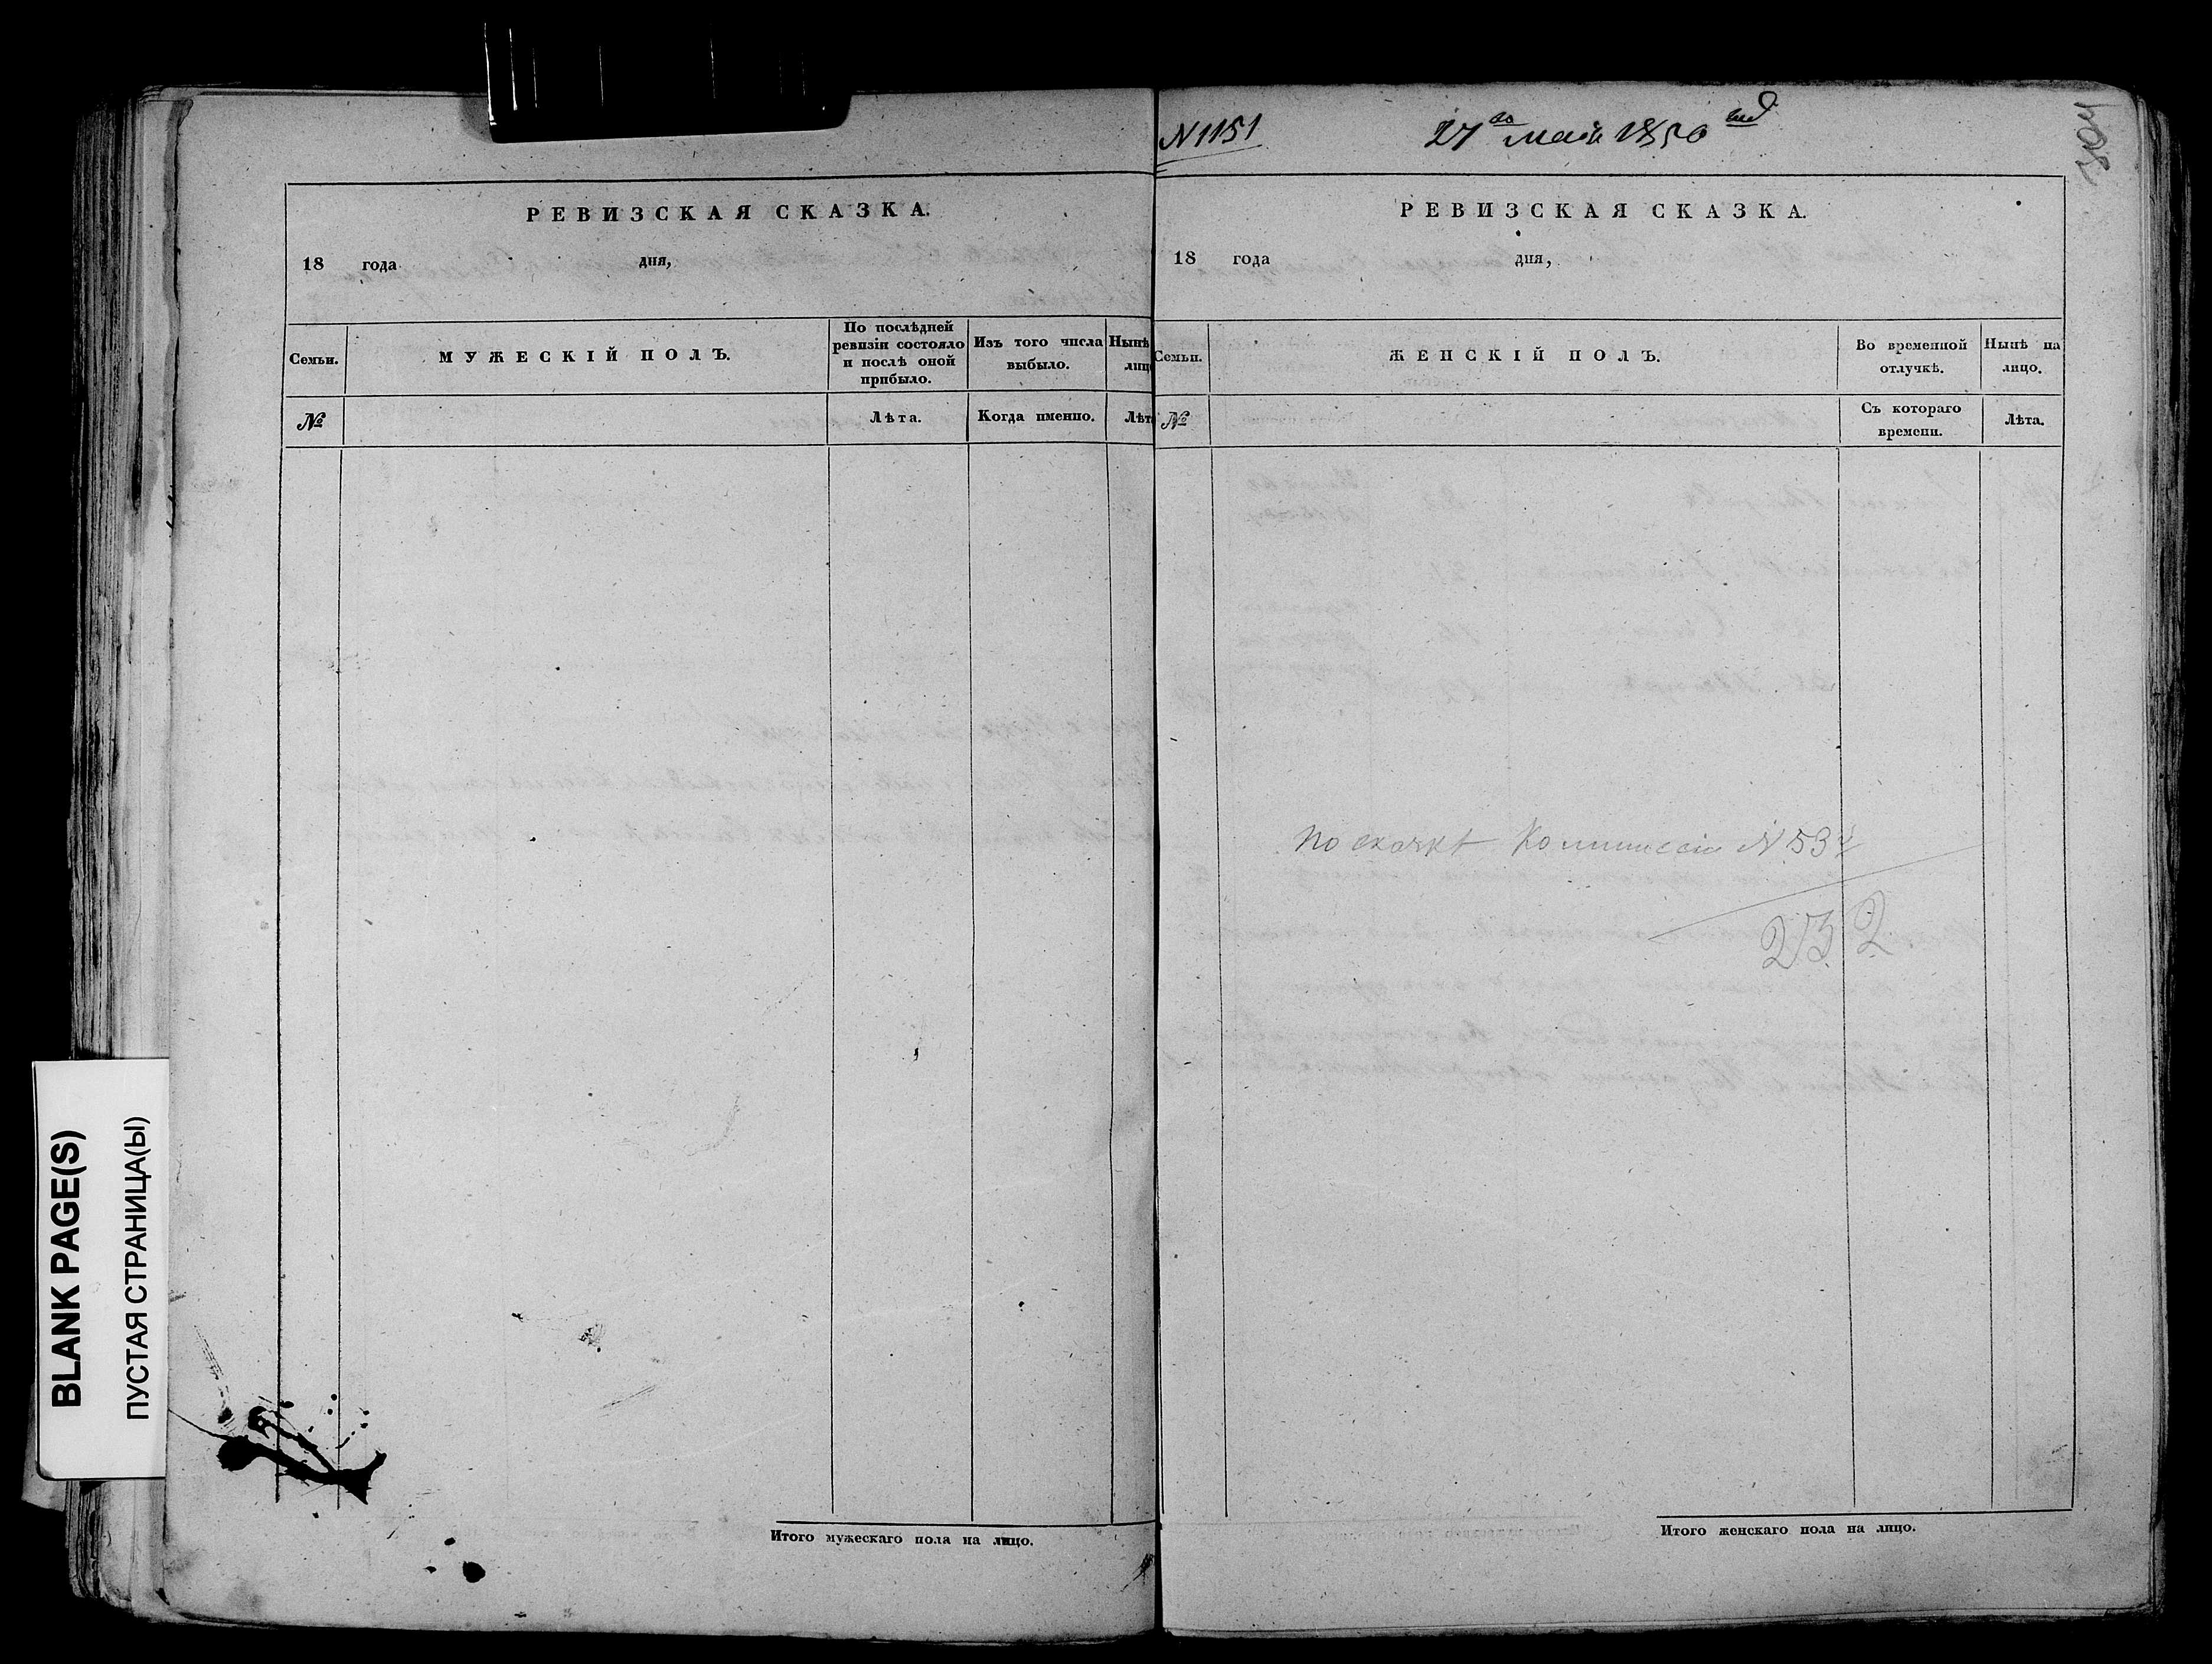 РЕВИЗСКАЯ СКАЗКА.
18 года дня,
Семьи.
МУЖЕСКІЙ ПОЛЪ.
По послѣдней
ревизіи состояло
и послѣ оной
прибыло.
Изъ того числа
выбыло.
Нынѣ
лиц
№
Лѣта.
Когда именно.
Лѣт
Итого мужескаго пола на лицо.
N 1151
27го мая 1850
304
РЕВИЗСКАЯ СКАЗКА.
18 года дня,
Семьи.
ЖЕНСКІЙ ПОЛЪ.
Во временной
отлучкѣ.
Нынѣ на
лицо.
№
Съ котораго
времени.
Лѣта.
По сказкѣ Коммиссіи N 534
232
Итого женскаго пола на лицо.
BLANK PAGE(S)
ПУСТАЯ СТРАНИЦА(Ы)